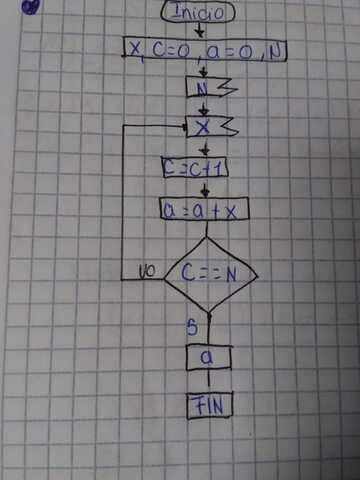 Inicio
X, C=0, a=0, N
N
X
C=C+1
a=a+x
C==N
NO
S
a
FIN